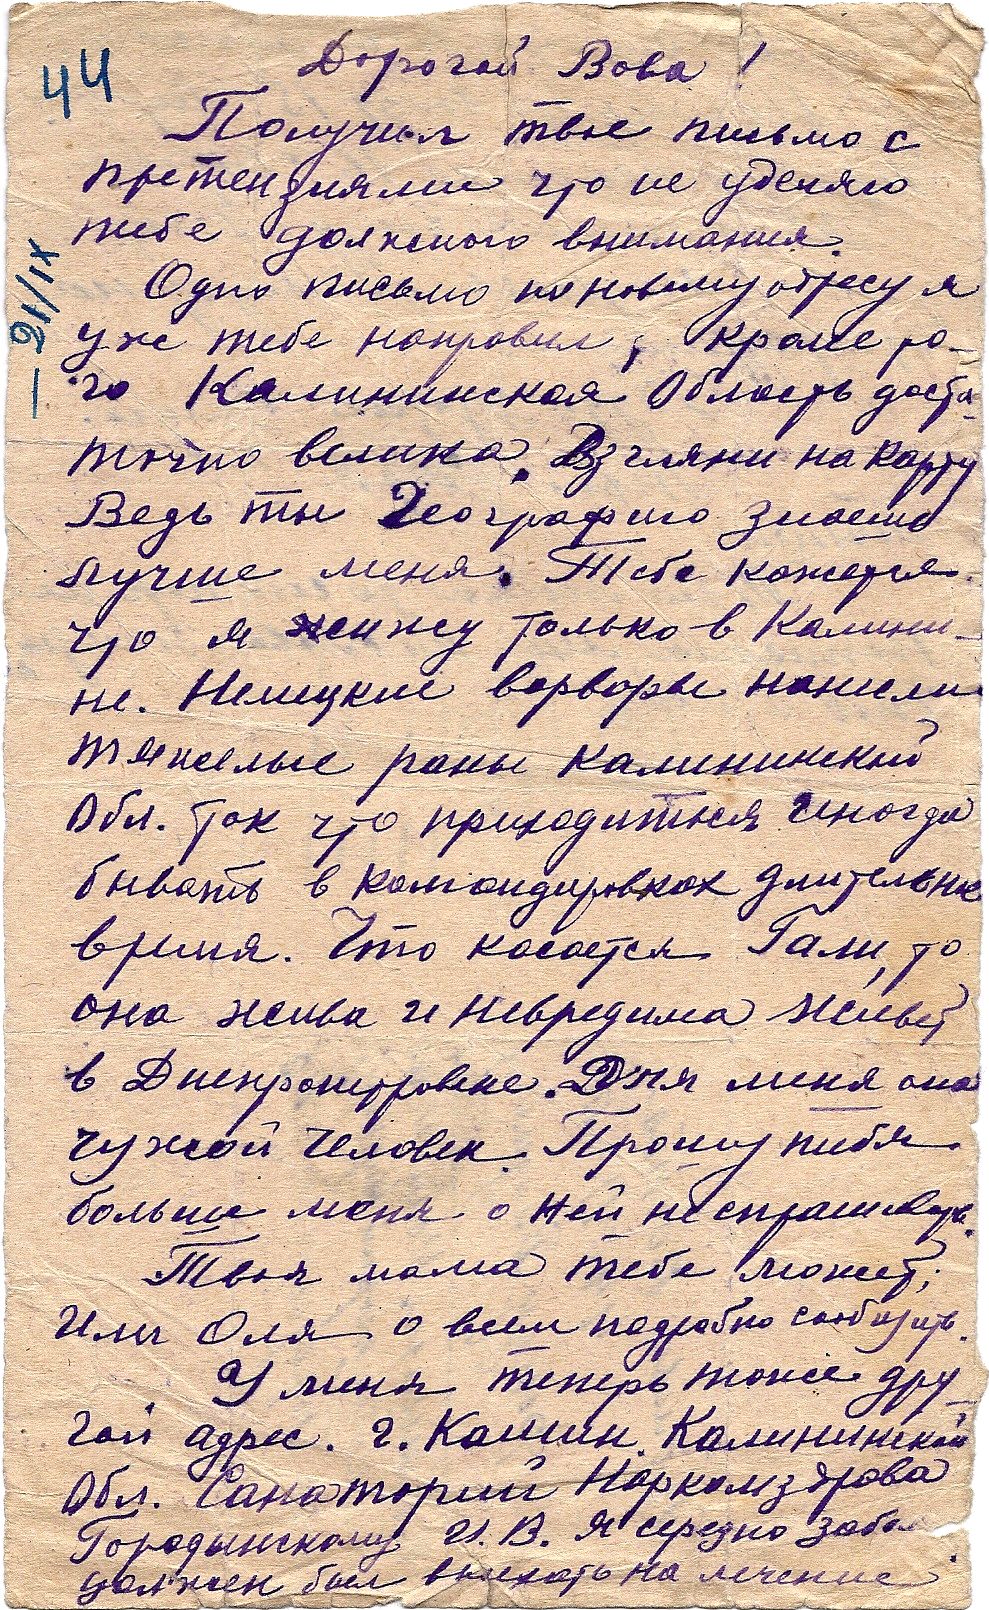 44
— 21/IX
Дорогой Вова!
Получил твое письмо с
претензиями что не уделяю
тебе должного внимания.
Одно письмо по новому адресу я
уже тебе направил, кроме то-
го Калининская Область доста-
точно велика. Взгляни на карту
Ведь ты Географию знаешь
лучше меня. Тебе кажется
что я сижу только в Калини-
не. Немецкие варвары нанесли
тяжелые раны Калининской
Обл. так что приходится иногда
бывать в командировках длительное
время. Что касается Гали, то
она жива и невредима живет
в Днепропетровске. Для меня она
чужой человек. Прошу тебя
больше меня о ней не спрашивать.
Твоя мама тебе может,
Или Оля о всем подробно сообщить.
У меня теперь тоже дру-
гой адрес. г. Кашин. Калининской
Обл. Санаторий Наркомздрава
Городынскому И. В. Я серезно забол
должен был выехать на лечение